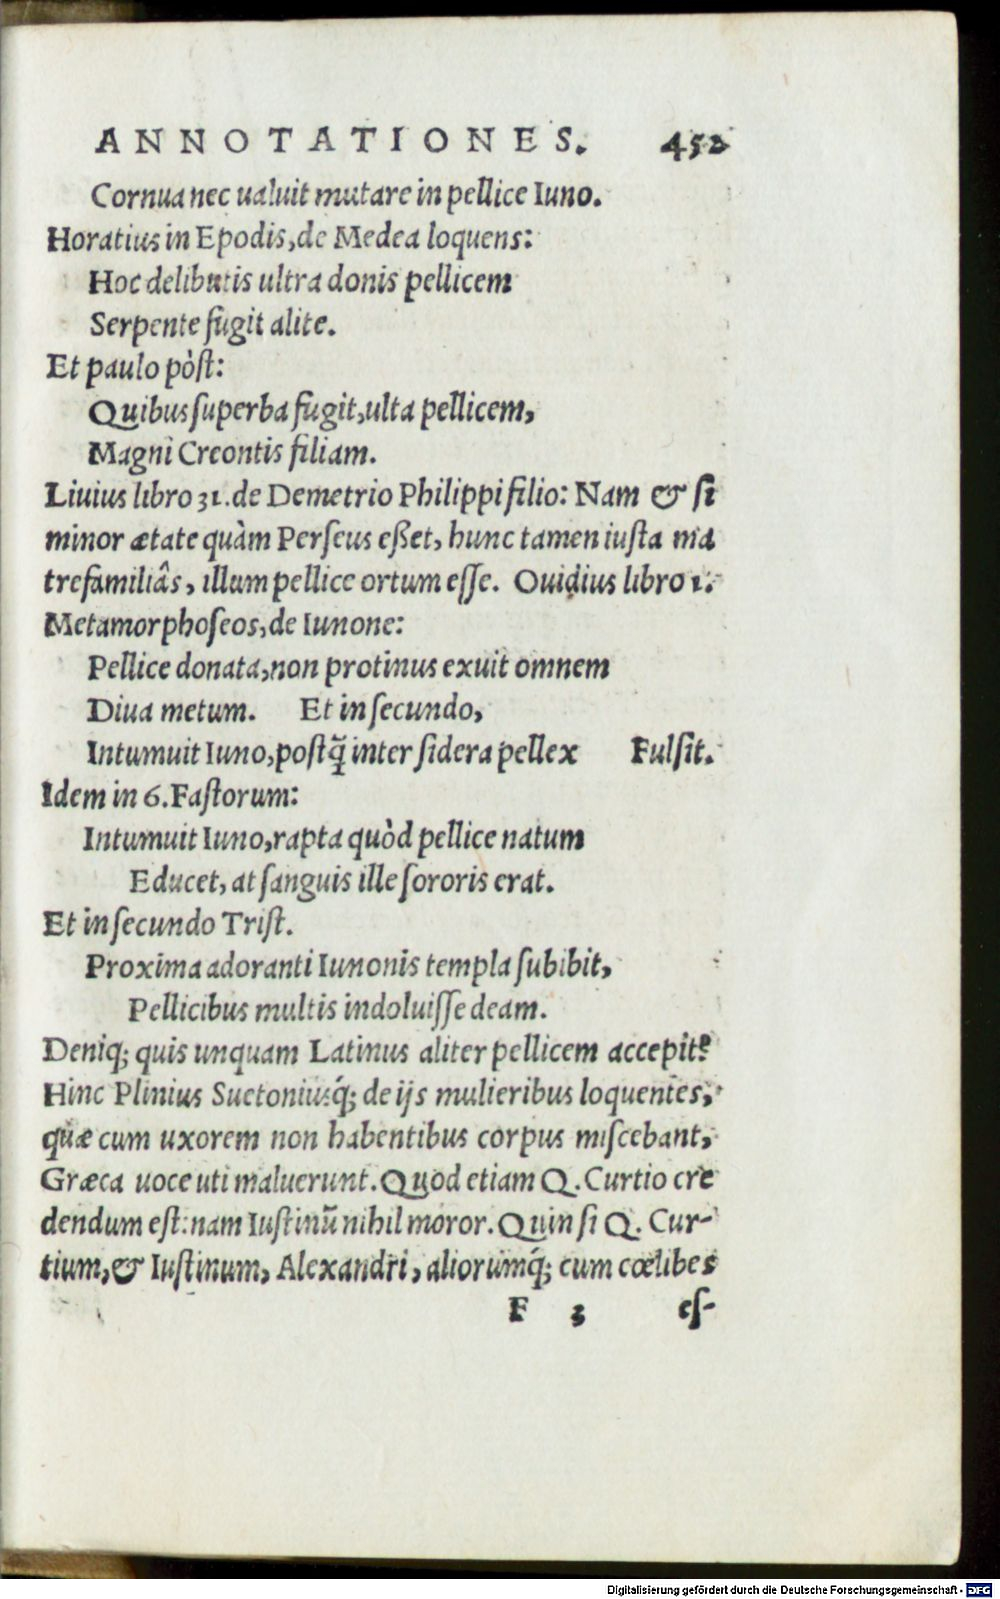 ANNOTATIONES. 452
Cornua nec ualuit mutare in pellice Iuno.
Horatius in Epodis, de Medea loquens:
Hoc delibutis ultra donis pellicem
Serpente fugit alite.
Et paulo pòſt:
Quibus ſuperba fugit, ulta pellicem,
Magni Creontis filiam.
Liuius libro 31. de Demetrio Philippi filio: Nam & ſi
minor ætate quàm Perſeus eßet, hunc tamen iuſta ma
trefamiliâs, illum pellice ortum eſſe. Ouidius libro 1.
Metamorphoſeos, de Iunone:
Pellice donata, non protinus exuit omnem
Diua metum. Et in ſecundo,
Intumuit Iuno, poſtq̃ inter ſidera pellex Fulſit.
Idem in 6. Faſtorum:
Intumuit Iuno, rapta quòd pellice natum
Educet, at ſanguis ille ſororis erat.
Et in ſecundo Triſt.
Proxima adoranti Iunonis templa ſubibit,
Pellicibus multis indoluiſſe deam.
Deniq; quis unquam Latinus aliter pellicem accepit?
Hinc Plinius Suetoniusq́; de ijs mulieribus loquentes,
quæ cum uxorem non habentibus corpus miſcebant,
Græca uoce uti maluerunt. Quod etiam Q. Curtio cre
dendum eſt: nam Iuſtinũ nihil moror. Quin ſi Q. Cur-
tium, & Iuſtinum, Alexandri, aliorumq́; cum cœlibes
F 3 eſ-
Digitalisierung gefördert durch die Deutsche Forschungsgemeinschaft - DFG